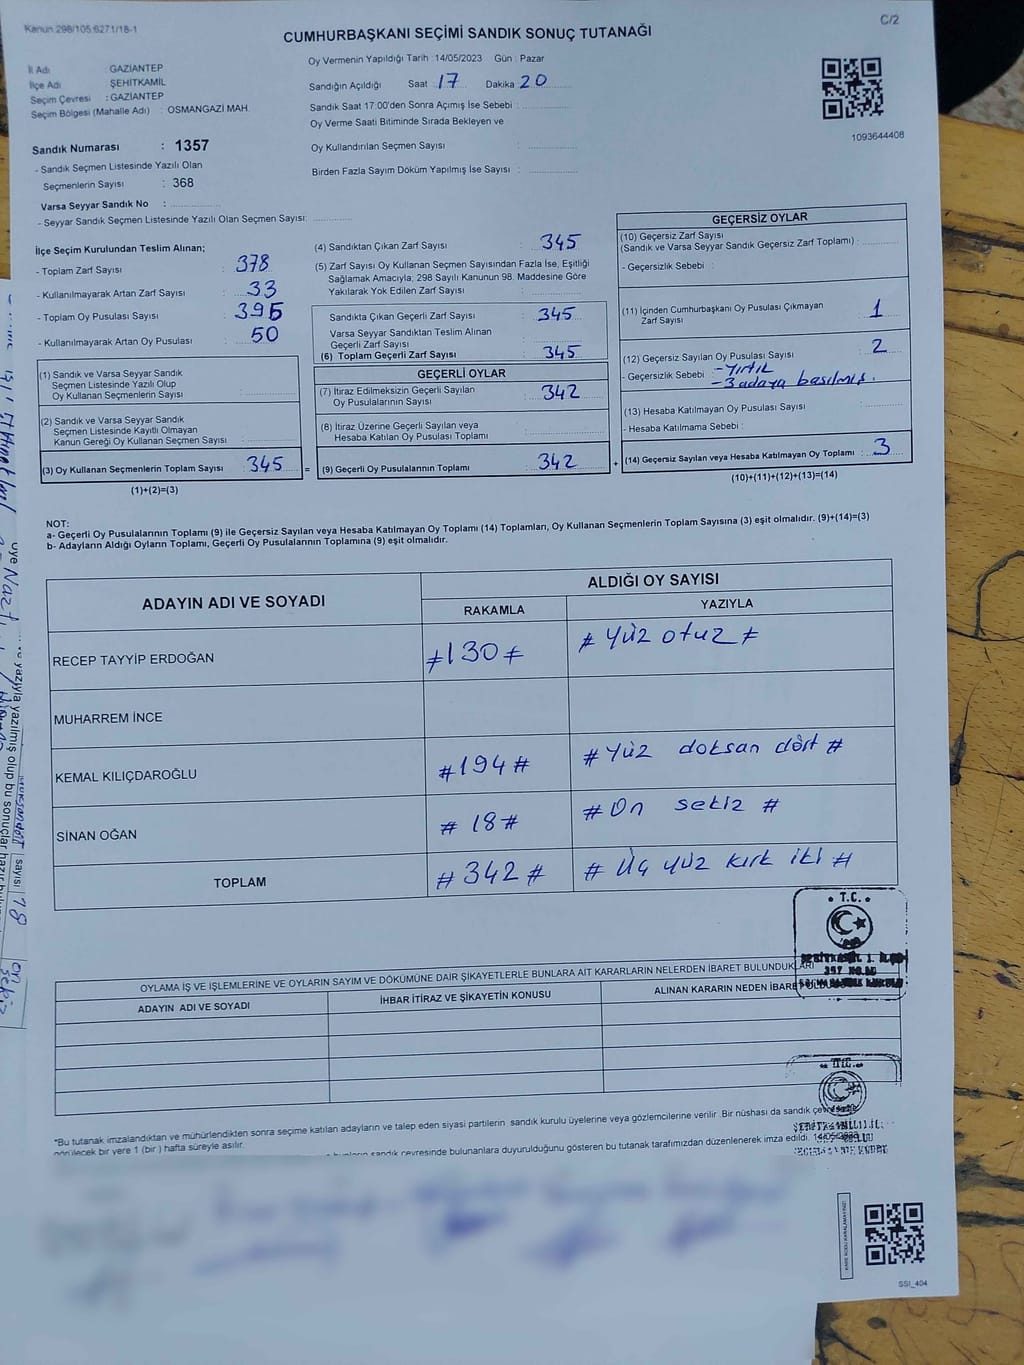 Kanun 298/105.6271/18-1
C/2
CUMHURBAŞKANI SEÇİMİ SANDIK SONUÇ TUTANAĞI
İl Adı : GAZİANTEP
İlçe Adı ŞEHİTKAMİL
Seçim Çevresi : GAZİANTEP
Seçim Bölgesi (Mahalle Adı) : OSMANGAZİ MAH.
Oy Vermenin Yapıldığı Tarih :14/05/2023 Gün : Pazar
Sandığın Açıldığı Saat 17 Dakika 20
Sandık Saat 17:00'den Sonra Açımış İse Sebebi :
Oy Verme Saati Bitiminde Sırada Bekleyen ve
Oy Kullandırılan Seçmen Sayısı :
Birden Fazla Sayım Döküm Yapılmış İse Sayısı :
1093644408
Sandık Numarası : 1357
- Sandık Seçmen Listesinde Yazılı Olan
Seçmenlerin Sayısı : 368
Varsa Seyyar Sandık No :
- Seyyar Sandık Seçmen Listesinde Yazılı Olan Seçmen Sayısı:
İlçe Seçim Kurulundan Teslim Alınan;
- Toplam Zarf Sayısı : 378
- Kullanılmayarak Artan Zarf Sayısı : 33
- Toplam Oy Pusulası Sayısı : 395
- Kullanılmayarak Artan Oy Pusulası : 50
(1) Sandık ve Varsa Seyyar Sandık
Seçmen Listesinde Yazılı Olup
Oy Kullanan Seçmenlerin Sayısı :
(2) Sandık ve Varsa Seyyar Sandık
Seçmen Listesinde Kayıtlı Olmayan
Kanun Gereği Oy Kullanan Seçmen Sayısı :
(3) Oy Kullanan Seçmenlerin Toplam Sayısı : 345 =
(1)+(2)=(3)
(4) Sandıktan Çıkan Zarf Sayısı : 345
(5) Zarf Sayısı Oy Kullanan Seçmen Sayısından Fazla İse, Eşitliği
Sağlamak Amacıyla; 298 Sayılı Kanunun 98. Maddesine Göre
Yakılarak Yok Edilen Zarf Sayısı :
Sandıkta Çıkan Geçerli Zarf Sayısı : 345
Varsa Seyyar Sandıktan Teslim Alınan
Geçerli Zarf Sayısı :
(6) Toplam Geçerli Zarf Sayısı : 345
GEÇERLİ OYLAR
(7) İtiraz Edilmeksizin Geçerli Sayılan
Oy Pusulalarının Sayısı : 342
(8) İtiraz Üzerine Geçerli Sayılan veya
Hesaba Katılan Oy Pusulası Toplamı :
(9) Geçerli Oy Pusulalarının Toplamı : 342 +
GEÇERSİZ OYLAR
(10) Geçersiz Zarf Sayısı
(Sandık ve Varsa Seyyar Sandık Geçersiz Zarf Toplamı) :
- Geçersizlik Sebebi :
(11) İçinden Cumhurbaşkanı Oy Pusulası Çıkmayan
Zarf Sayısı : 1
(12) Geçersiz Sayılan Oy Pusulası Sayısı : 2
- Geçersizlik Sebebi : -Yırtık
-3 adaya basılmış.
(13) Hesaba Katılmayan Oy Pusulası Sayısı :
- Hesaba Katılmama Sebebi :
(14) Geçersiz Sayılan veya Hesaba Katılmayan Oy Toplamı : 3
(10)+(11)+(12)+(13)=(14)
NOT:
a- Geçerli Oy Pusulalarının Toplamı (9) ile Geçersiz Sayılan veya Hesaba Katılmayan Oy Toplamı (14) Toplamları, Oy Kullanan Seçmenlerin Toplam Sayısına (3) eşit olmalıdır. (9)+(14)=(3)
b- Adayların Aldığı Oyların Toplamı, Geçerli Oy Pusulalarının Toplamına (9) eşit olmalıdır.
ADAYIN ADI VE SOYADI
ALDIĞI OY SAYISI
RAKAMLA YAZIYLA
RECEP TAYYİP ERDOĞAN #130# # Yüz otuz #
MUHARREM İNCE
KEMAL KILIÇDAROĞLU #194# # Yüz doksan dört #
SİNAN OĞAN # 18# # On sekiz #
TOPLAM #342# # Üç yüz kırk iki #
T.C.
OYLAMA İŞ VE İŞLEMLERİNE VE OYLARIN SAYIM VE DÖKÜMÜNE DAİR ŞİKAYETLERLE BUNLARA AİT KARARLARIN NELERDEN İBARET BULUNDUKLARI
ADAYIN ADI VE SOYADI İHBAR İTİRAZ VE ŞİKAYETİN KONUSU ALINAN KARARIN NEDEN İBARET OLDUĞU
T.C.
*Bu tutanak imzalandıktan ve mühürlendikten sonra seçime katılan adayların ve talep eden siyasi partilerin sandık kurulu üyelerine veya gözlemcilerine verilir .Bir nüshası da sandık
görülecek bir yere 1 (bir ) hafta süreyle asılır.
sandık çevresinde bulunanlara duyurulduğunu gösteren bu tutanak tarafımızdan düzenlenerek imza edildi. 14/05/2023
KARE KODU KARALAMAYINIZ!
SSI_404
yazıyla yazılmış olup bu sonuçlar
sayısı 18
on
sekiz